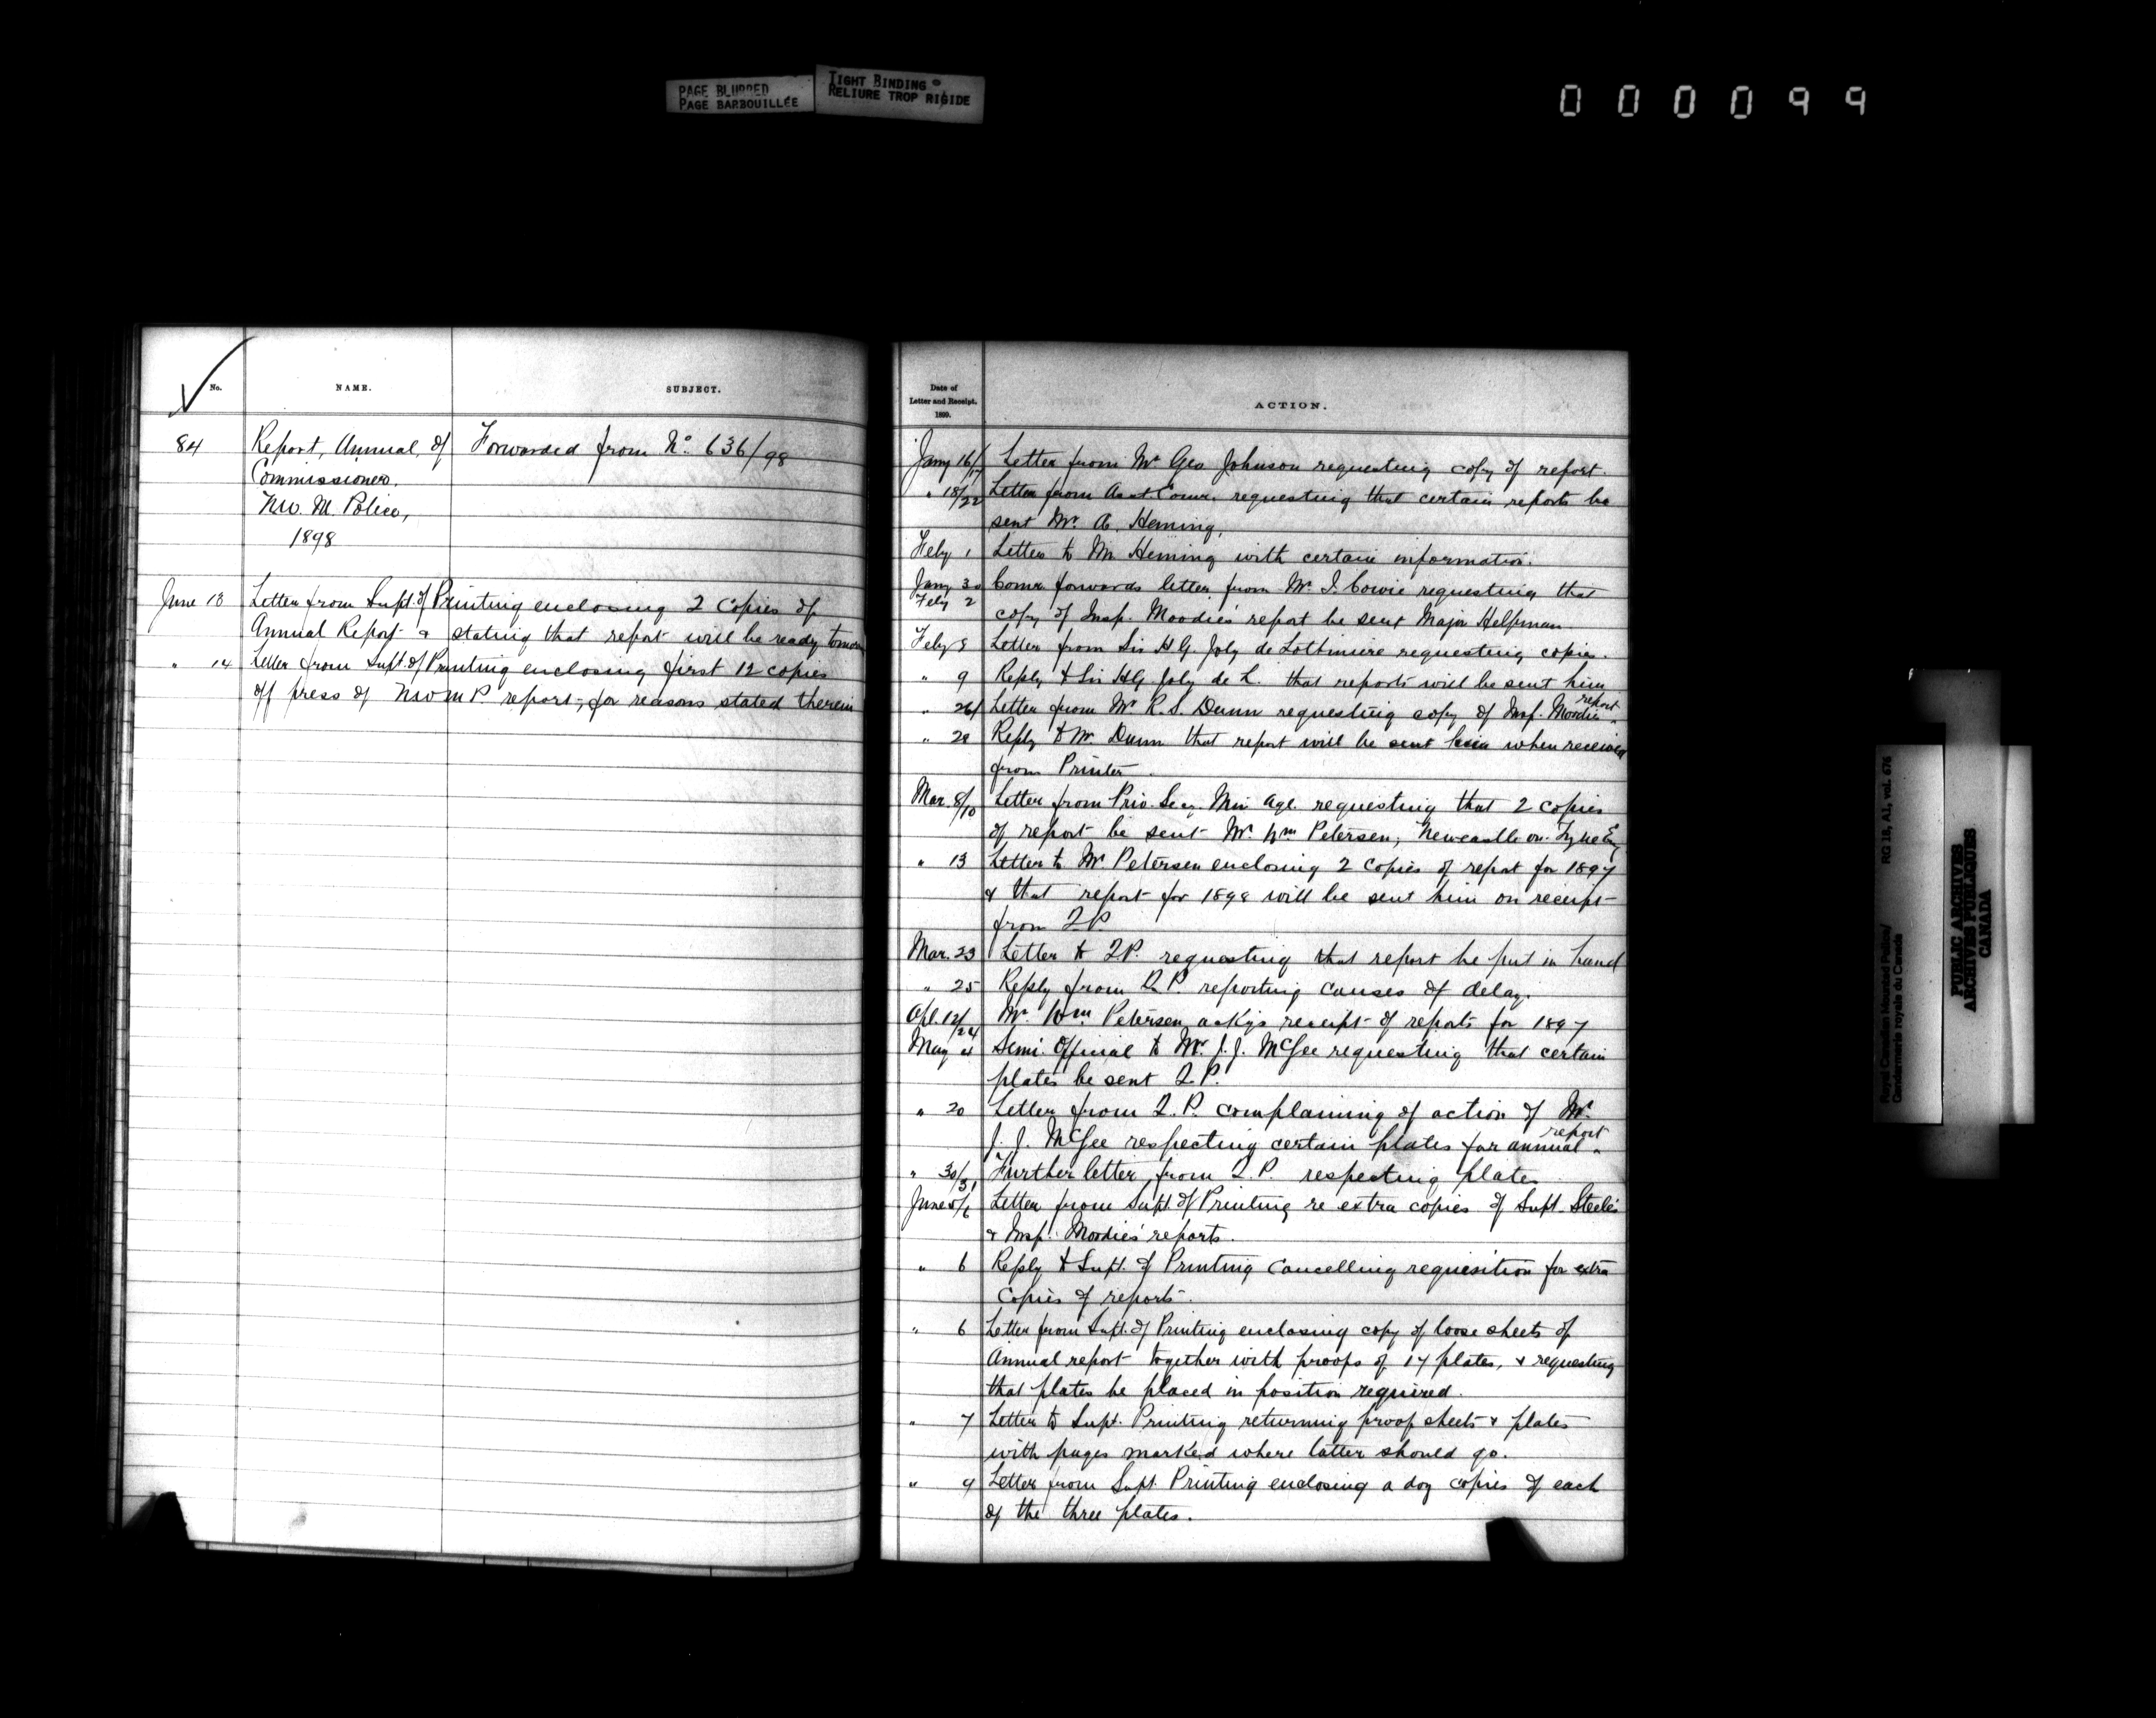 PAGE BLURRED
PAGE BARBOUILLÉE
TIGHT BINDING
RELIURE TROP RIGIDE
000099
No.
NAME.
SUBJECT.
84 Report, Annual, of Forwarded from No. 636/98
Commissioner.
N.W. M. Police,
1898
June 13 Letter from Supt. of Printing enclosing 2 copies of
Annual Report & stating that report will be ready
" 14 Letter from Supt. of Printing enclosing first 12 copies
off press of NWMP. report, for reasons stated therein
Date of
Letter and Receipt.
1899.
ACTION.
Jany 16/17 Letter from Mr Geo Johnson requesting copy of report.
" 18/22 Letter from Asst. Comr. requesting that certain reports be
sent Mr. A. Heming.
Feby 1 Letter to Mr Heming with certain information.
Jany 30 Comr forwards letter from Mr. I. Cowie requesting that
Feby 2
copy of Insp. Moodie's report be sent Major Helpman
Feby 8 Letter from Sir H G. Joly de Lotbiniere requesting copies.
" 9 Reply to Sir HG Joly de L. that reports will be sent him
" 26/ Letter from Mr R. S. Dunn requesting copy of Insp. Moodie report
" 28 Reply to Mr. Dunn that report will be sent him when received
from Printer.
Mar. 8/10 Letter from Priv. Secy. Min Agr. requesting that 2 copies
of report be sent Mr. Wm Petersen, Newcastle on Tyne Eng
" 13 Letter to Mr Petersen enclosing 2 copies of report for 1897
& that report for 1898 will be sent him on receipt
from Q.P.
Mar. 23 Letter to Q.P. requesting that report be put in hand
" 25 Reply from Q.P. reporting causes of delay.
Apl. 12/24 Mr. Wm Petersen ackgs receipt of reports for 1897
May Semi Official to Mr. J. J. McGee requesting that certain
plates be sent Q.P.
" 20 Letter from Q.P. complaining of action of Mr.
J. J. McGee respecting certain plates for annual report
" 30/31 Further letter from Q.P. respecting plates
June 5/6 Letter from Supt. of Printing re extra copies of Supt. Steele's
& Insp. Moodie's reports.
" 6 Reply to Supt. of Printing cancelling requisition for extra
copies of reports.
" 6 Letter from Supt. of Printing enclosing copy of loose sheets of
Annual report together with proofs of 17 plates, & requesting
that plates be placed in position required.
" 7 Letter to Supt. Printing returning proof sheets & plates
with pages marked where latter should go.
" 9 Letter from Supt. Printing enclosing a doz copies of each
of the three plates.
Royal Canadian Mounted Police/
Gendarmerie royale du Canada
RG 18, A1, vol. 676
PUBLIC ARCHIVES
ARCHIVES PUBLIQUES
CANADA